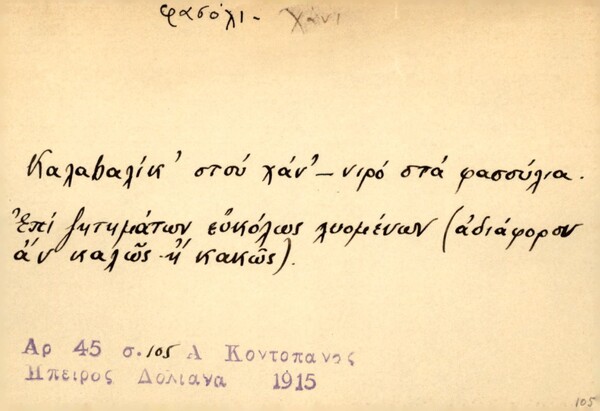 φασόλι - χάνι
Καλαbαλίκ' στού χάν' – νιρό στά φασσούλια.
Ἐπί ζητημάτων εὐκόλως λυομένων (ἀδιάφορον
ἄν καλῶς ἤ κακῶς).
Αρ 45 σ. 105 Α Κοντοπανος
Ηπειρος Δολιανα 1915
105